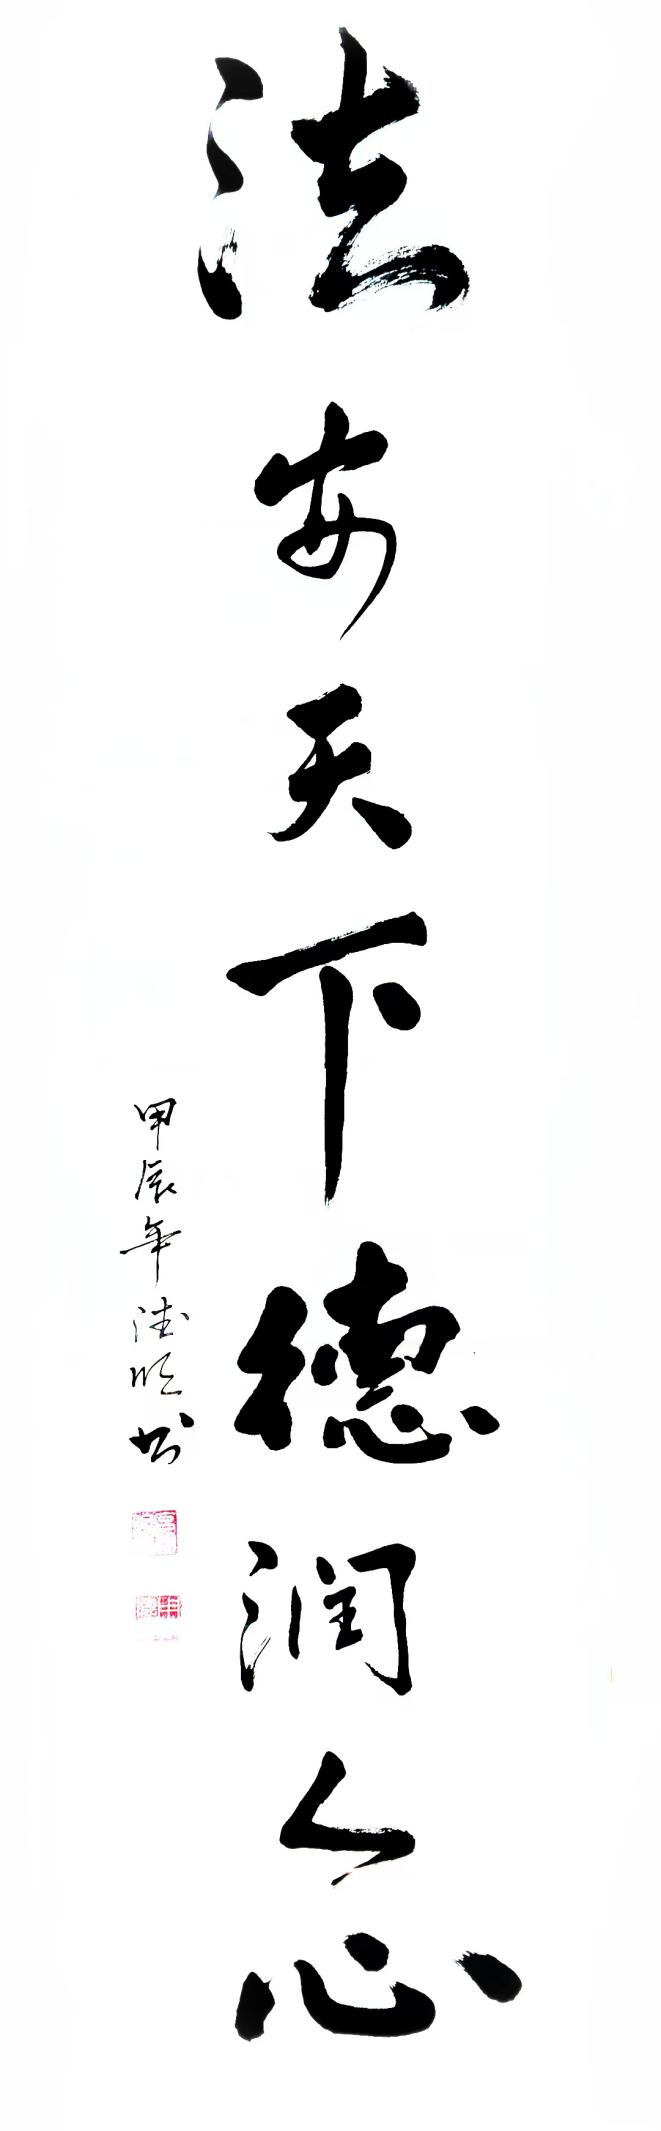 法安天下德润人心
甲辰年 书